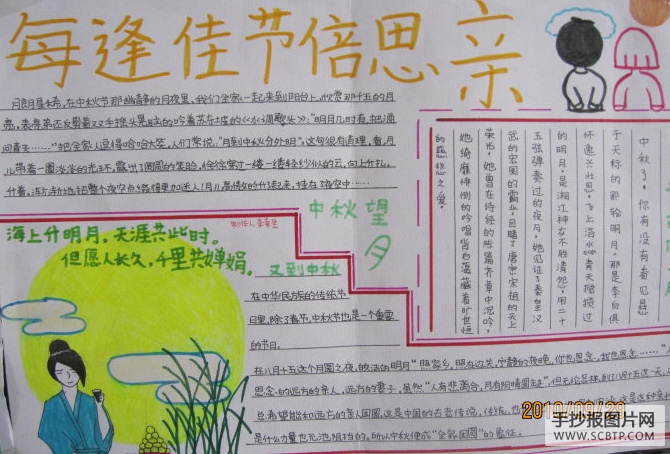 每逢佳节倍思亲
月朗星稀,在中秋节那幽静的月夜里,我们全家一起来到阳台上,欣赏那十五的月
亮,表弟弟还反剪着双手摇头晃脑的吟着苏东坡的《水调歌头》,"明月几时有,把酒
问青天……"把全家人逗得哈哈大笑,人们常说,"月到中秋分外明",这句很有道理,看,月
儿带着一圈淡淡的光环,露出了圆圆的笑脸,徐徐穿过一缕一缕轻纱似的云,向上升扎
什着,冻方东地,把整个夜空点
中秋望月
制作人
海上升明月,天涯共此时。
但愿人长久,千里共婵娟。
又到中秋
在中华民族的传统节
日里,除了春节,中秋节也是一个重要
的节日。
在八月十五这个月圆之夜,皎洁的明月"照家乡,照在边关,宁静的夜晚,你也思念,我也思念……"
思念的远方的亲人,远方的妻子,虽然"人有悲离合,月有阴晴圆缺",但无论怎样,到了八月十五这一天,人
总希望能和远方的亲人团圆,这是中国的古老传说,传
是什么力量也无法阻挡的。所以中秋便成"全家团圆"的象征。
中秋了,你有没有看见悬
于天标的那轮明月,那是李白俱
怀逸兴壮思飞上
的明月,是湘江神女不胜清怨,用二十
五弦弹奏过的夜月,她见证了秦皇汉
武的宏图的霸业,目睹了唐宗宋祖的天上
荣光,她曾在诗经的
她绮靡悱恻的吟唱背后蕴藏着旷世恒
的慈悲之爱。
2010/09/29
手抄报图片网
WWW.SCBTP.COM